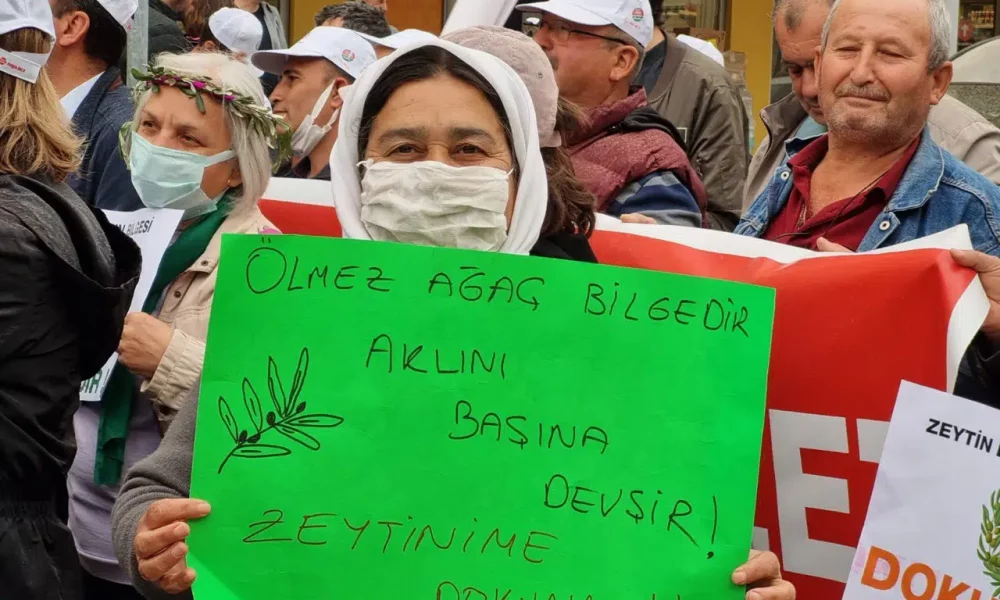 ÖLMEZ AĞAÇ BİLGEDİR
AKLINI
BAŞINA
DEVŞİR!
ZEYTİNİME
ZEYTİN